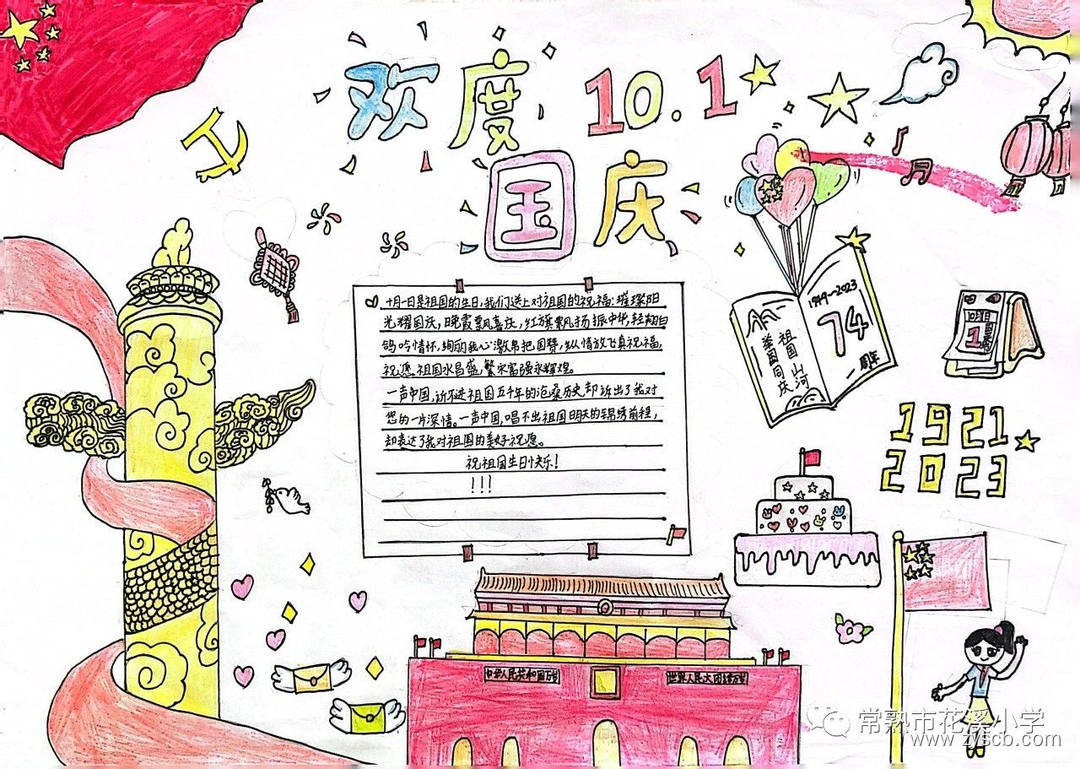 欢度 10.1
国庆
十月一日是祖国的生日,我们送上对祖国的祝福:璀璨阳
光耀国庆,晚霞飘喜庆,红旗飘扬振中华,轻翔白
鸽吟情怀,绚丽我心激昂把国赞,纵情放飞真祝福,
祝愿祖国永昌盛,繁荣富强永辉煌。
一声中国,诉不进祖国五千年的沧桑历史却诉出了我对
您的一片深情。一声中国,唱不出祖国明天的锦绣前程,
却表达了我对祖国的美好祝愿。
祝祖国生日快乐!
!!!
1949~2023
74
周年
祖国山河
举国同庆
10月1日
1
1921
2023
中华人民共和国万岁
世界人民大团结万岁
常熟市花溪小学
www.zyscb.com